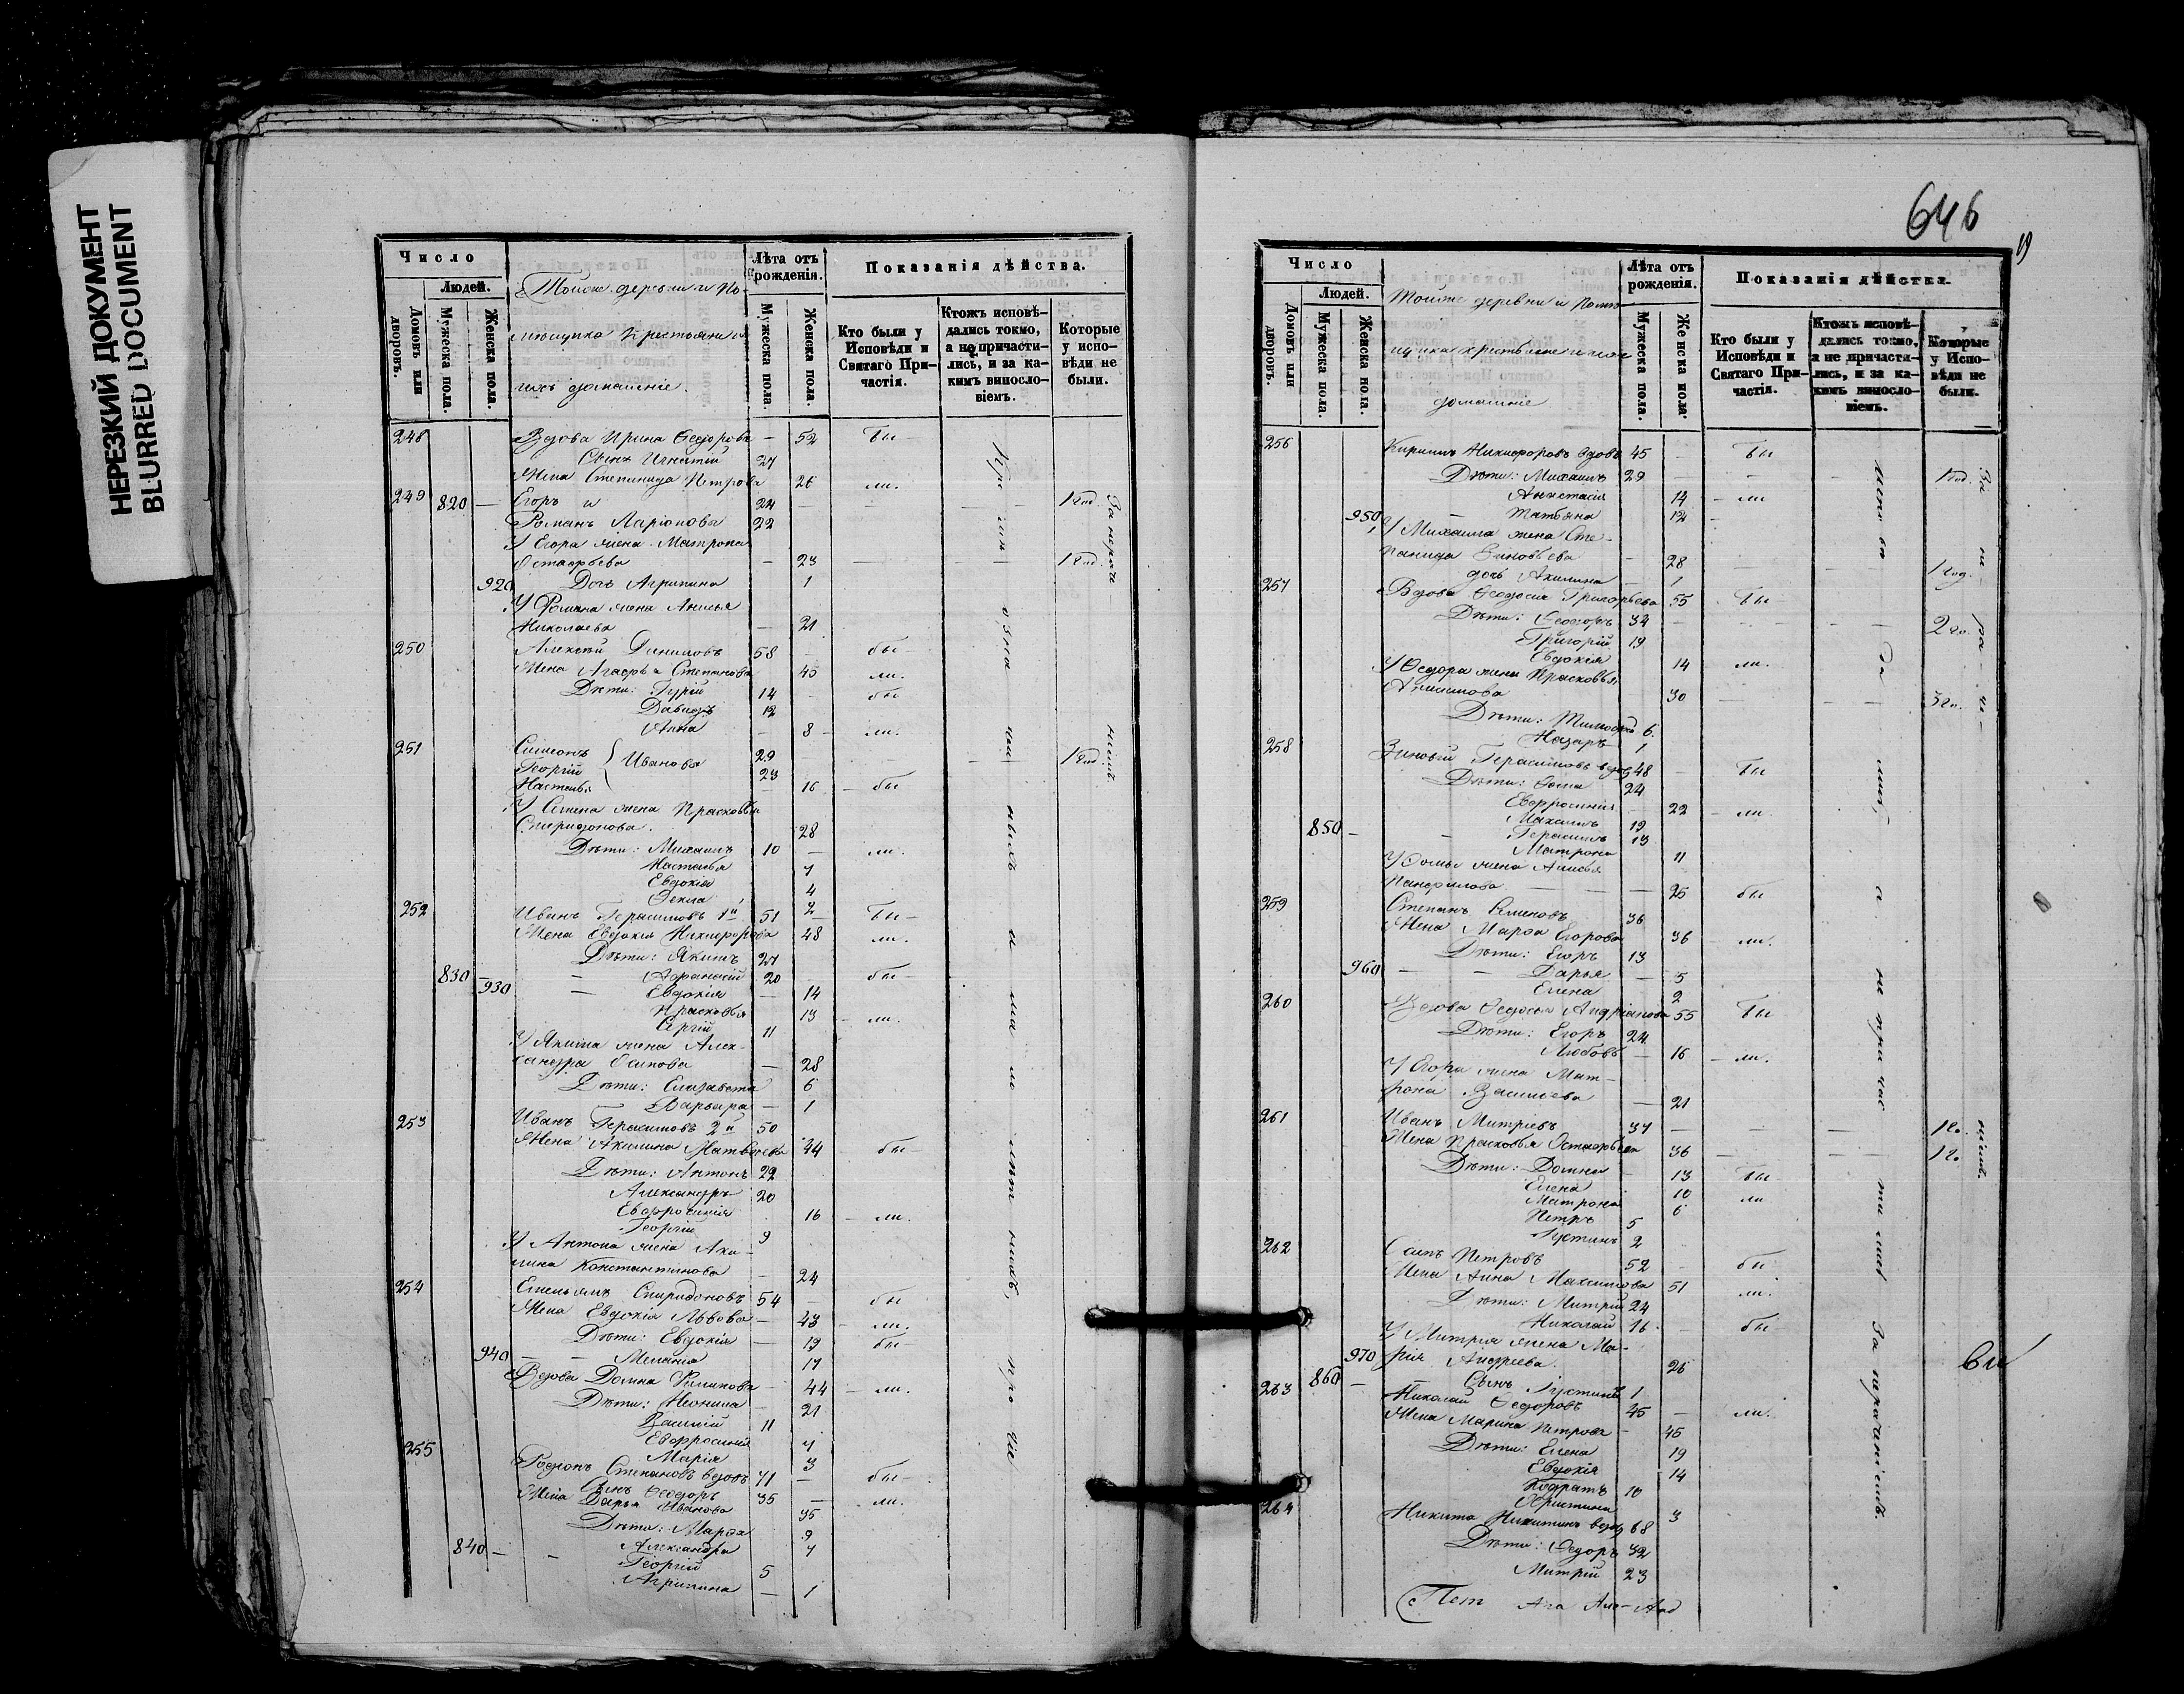 НЕРЕЗКИЙ ДОКУМЕНТ
BLURRED DOCUMENT
Число
Людей.
Домовъ или дворовъ.
Мужеска пола.
Женска пола.
Тойже деревни и по-
мещика Крестьяне и
ихъ домашніе.
Лѣта отъ рожденія.
Мужеска пола.
Женска пола.
Показанія дѣйства.
Кто были у Исповѣди и Святаго Причастія.
Ктожъ исповѣдались токмо, а не причастились, и за какимъ винословіемъ.
Которые у исповѣди не были.
248 Вдова Ирина Ѳедорова — 52 бы
Сынъ Игнатій 27
Жена Степанида Петрова 26 ли.
249 820 — Егоръ и 24 — — — 1 год.
Романъ Ларіоновы 22
У Егора жена Матрона
Остафьева — 23 — — 1 год.
920 Дочь Агрипина 1
У Романа жена Анисья
Николаева — 21
250 Алексѣй Даниловъ 58 — бы
Жена Агафья Степанова 45 ли.
Дѣти: Гурій 14 — бы
Давидъ 12
Анна — 8 — ли.
251 Симеонъ 29 1 год
Георгій Иванова 23
Настасья — 16 — бы
У Семена жена Прасковья
Спиридонова. 28
Дѣти: Михаилъ 10 — ли.
Настасья 7
Евдокія 4
Фекла 2
252 Иванъ Герасимовъ 1й 51 — бы
Жена Евдокія Никифорова 48 ли.
Дѣти: Якимъ 27
830 — Афанасій 20 — бы
930 — Евдокія — 14
Прасковья 13 — ли.
Сергій 11
У Якима жена Алек-
сандра Осипова — 28
Дѣти: Елизавета 6
Варвара — 1
253 Иванъ Герасимовъ 2й 50
Жена Акилина Матвѣева 44 — бы
Дѣти: Антонъ 22
Александръ 20
Евфросинія 16 — ли.
Георгій 9
У Антона жена Аки-
лина Константинова — 24
254 Емельянъ Спиридоновъ 54 — бы
Жена Евдокія Львова — 43 — ли.
Дѣти: Евдокія — 19 бы
940 — — Меланія 17
Вдова Домна Филипова 44 — ли.
Дѣти: Неонила — 21
Василій 11
Евфросинія 7
Марія 3
255 Родіонъ Степановъ вдовъ 71 — бы
Сынъ Ѳедоръ 35 — ли.
Жена Дарья Иванова 35
Дѣти: Марфа 9
840 — — Александра 7
Георгій 5
Агрипина — 1
За нерачи
ніемъ.
646
19
Число
Людей.
Домовъ или дворовъ.
Мужеска пола.
Женска пола.
Тойже деревни и поме
щика крестьяне и ихъ
домашніе
Лѣта отъ рожденія.
Мужеска пола.
Женска пола.
Показанія дѣйства.
Кто были у Исповѣди и Святаго Причастія.
Ктожъ исповѣдались токмо, а не причастились, и за какимъ винословіемъ.
Которые у Исповѣди не были.
256 Кирилъ Никифоровъ вдовъ 45 — бы
Дѣти: Михаилъ 29 — — — 1 год.
Анастасія 14 — ли
950 — Татьяна 12
У Михаила жена Сте-
панида Зиновьева — 28 — — 1 год.
дочь Акилина — 1
257 Вдова Ѳедосія Григорьева 55 бы
Дѣти: Ѳеодоръ 34 — — — 2 го.
Григорій 19
Евдокія 14 ли.
У Ѳедора жена Прасковья
Анисимова 30 — — 3 го.
Дѣти: Тимофей 6.
Назаръ 1
258 Зиновій Герасимовъ вдовъ 48 — бы
Дѣти: Фома 24
Евфросинія 22 — ли.
Максимъ 19
850 — — Герасимъ 13
Матрона 11
У Фомы жена Анисья
Панфилова — 25 бы
259 Степанъ Семеновъ 36
Жена Марфа Егорова 36 — ли.
Дѣти: Егоръ 13
960 — — Дарья — 5
Елена 2
260 Вдова Ѳедосья Андріанова 55 бы
Дѣти: Егоръ 24
Любовь — 16 — ли.
У Егора жена Мат-
рона Васильева — 21
261 Иванъ Митріевъ 37 — — — 1 го.
Жена Прасковья Остафьева 36 — — 1 го
Дѣти: Домна — 13 бы
Елена 10 ли
Матрона 6
Петръ 5
Густинъ 2
262 Петровъ 52 — бы
Жена Анна Максимова 51 ли.
Дѣти: Митрій 24
Николай 16 — бы
У Митрія жена Ма-
970 рія Андреева. 26
860 — Сынъ Густинъ 1
263 Николай Ѳедоровъ 45 — ли.
Жена Марина Петрова — 45
Дѣти: Елена 19
Евдокія 14
Кодратъ 10
Христина 3
264 Никита Никитинъ вдовъ 68
Дѣти: Ѳедоръ 32
Митрій 23
За не ра че-
ніемъ.